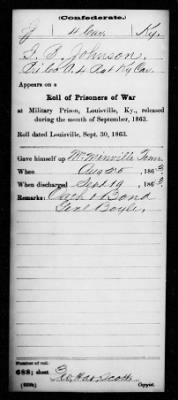 (Confederate.)
J 4 Cav. Ky.
J. P. Johnson,
Pvt Co. A. 4 Regt Ky Cav.
Appears on a
Roll of Prisoners of War
at Military Prison, Louisville, Ky., released
during the month of September, 1863.
Roll dated Louisville, Sept. 30, 1863.
Gave himself up McMinville Tenn
When Aug 25, 1863
When discharged Sept 19, 1863.
Remarks: Oath & Bond
Genl Boyle,
Number of roll:
688; sheet
Copyist.